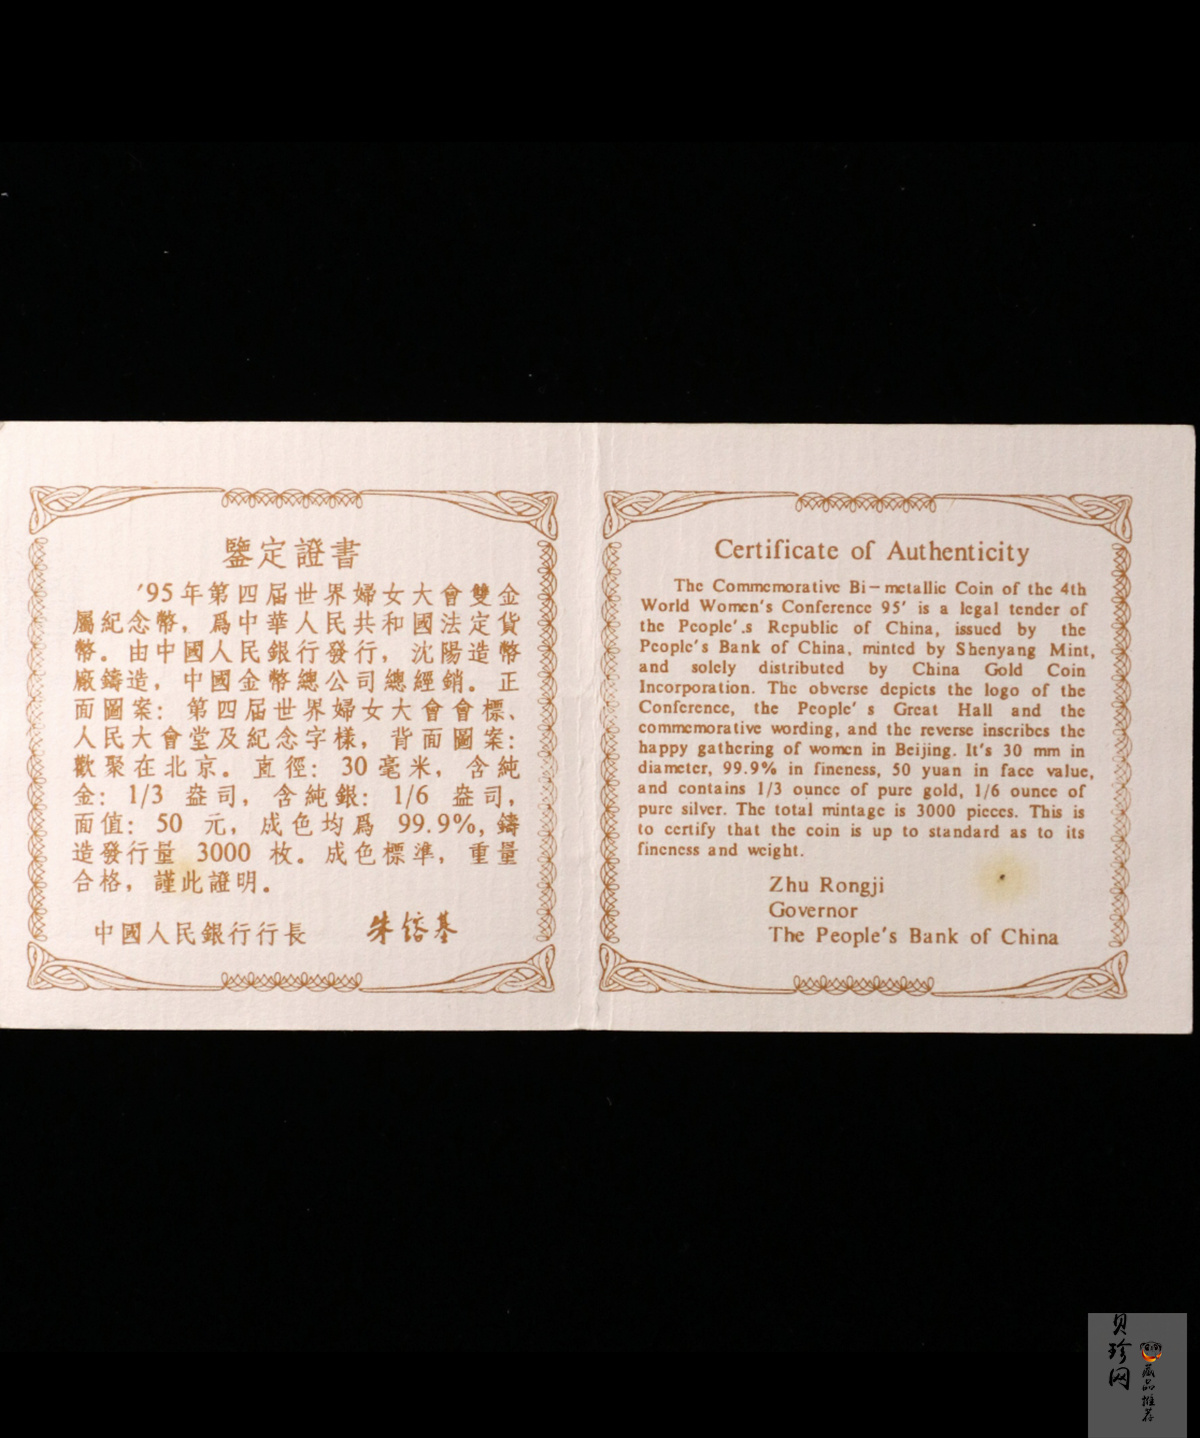 鑒定證書
'95年第四届世界婦女大會雙金
屬紀念幣，爲中華人民共和國法定貨
幣。由中國人民銀行發行，沈陽造幣
廠鑄造，中國金幣總公司總經銷。正
面圖案：第四届世界婦女大會會標、
人民大會堂及紀念字樣，背面圖案：
歡聚在北京。直徑：30毫米，含純
金：1/3 盎司，含純銀：1/6 盎司，
面值：50 元，成色均爲 99.9%，鑄
造發行量 3000 枚。成色標準，重量
合格，謹此證明。
中國人民銀行行長 朱镕基
Certificate of Authenticity
The Commemorative Bi-metallic Coin of the 4th
World Women's Conference 95' is a legal tender of
the People'.s Republic of China, issued by the
People's Bank of China, minted by Shenyang Mint,
and solely distributed by China Gold Coin
Incorporation. The obverse depicts the logo of the
Conference, the People' s Great Hall and the
commemorative wording, and the reverse inscribes the
happy gathering of women in Beijing. It's 30 mm in
diameter, 99.9% in fineness, 50 yuan in face value,
and contains 1/3 ounce of pure gold, 1/6 ounce of
pure silver. The total mintage is 3000 pieces. This is
to certify that the coin is up to standard as to its
fineness and weight.
Zhu Rongji
Governor
The People's Bank of China
贝珍网
藏品推荐